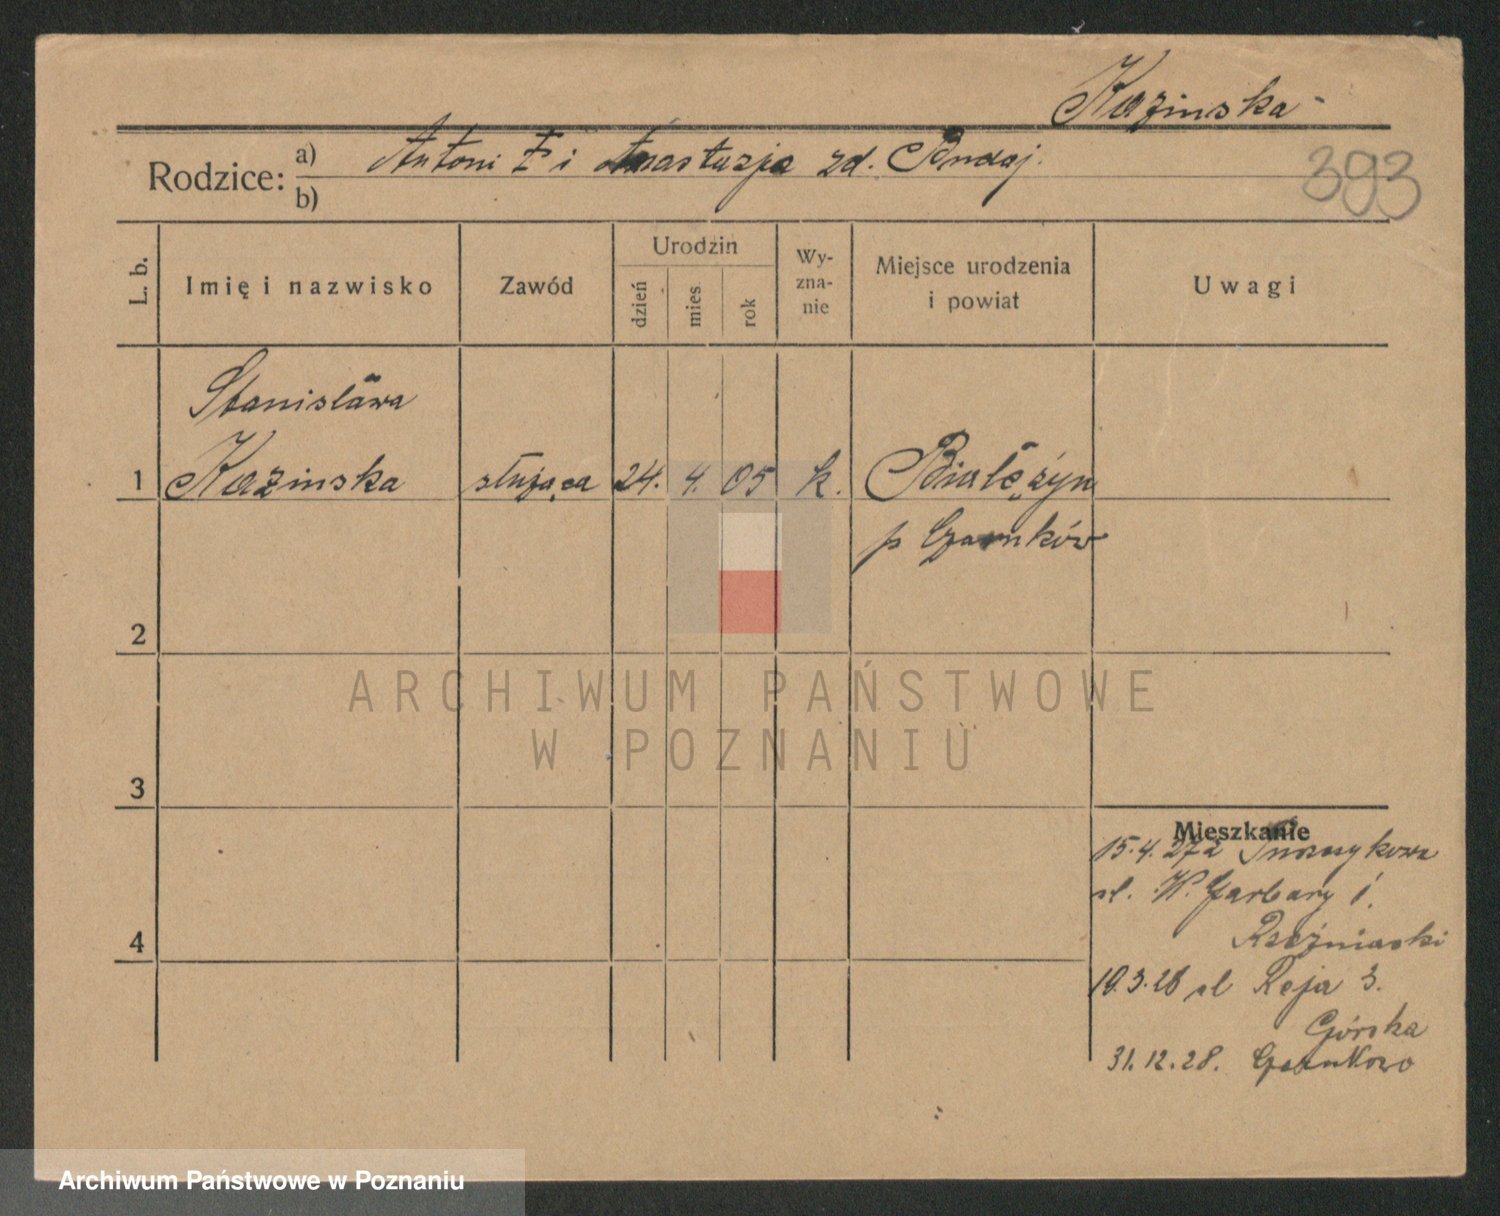 Kazinska
Rodzice: a) Antoni † i Anastazja zd.
b)
393
L. b.
Imię i nazwisko
Zawód
Urodzin
dzień
mies.
rok
Wy-
zna-
nie
Miejsce urodzenia
i powiat
Uwagi
Stanisława
1 Kazinska służąca 24. 4. 05 k. Białężyn
p Czarnków
2
ARCHIWUM PAŃSTWOWE
W POZNANIU
3
4
Mieszkanie
15.4.27 z
ul. W. Garbary 1.
10.3.28 ul Reja 3.
Górska
31.12.28.
Archiwum Państwowe w Poznaniu